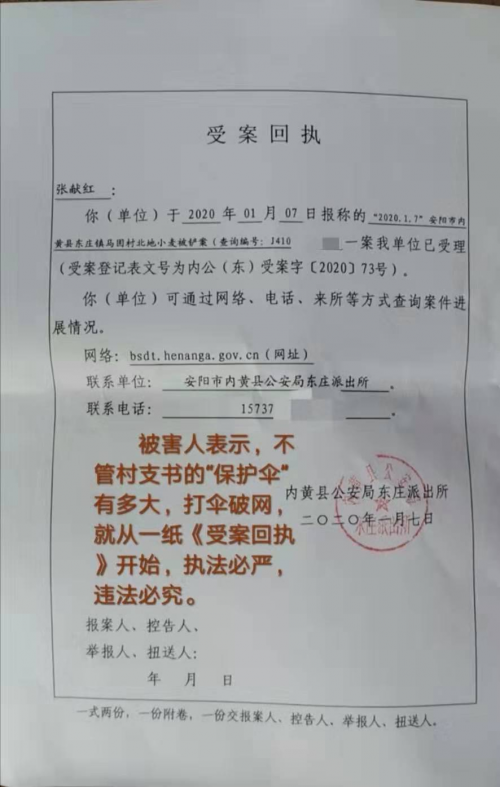 受案回执
张献红：
你（单位）于2020年01月07日报称的“2020.1.7”安阳市内
黄县东庄镇马固村北地小麦被铲案（查询编号：J410 一案我单位已受理
（受案登记表文号为内公（东）受案字〔2020〕73号）。
你（单位）可通过网络、电话、来所等方式查询案件进
展情况。
网络：bsdt.henanga.gov.cn（网址）
联系单位：安阳市内黄县公安局东庄派出所。
联系电话：15737
被害人表示，不
管村支书的“保护伞”
有多大，打伞破网，
就从一纸《受案回执
》开始，执法必严，
违法必究。
内黄县公安局东庄派出所
二〇二〇年一月七日
东庄派出所
报案人、控告人、
举报人、扭送人：
年 月 日
一式两份，一份附卷，一份交报案人、控告人、举报人、扭送人。